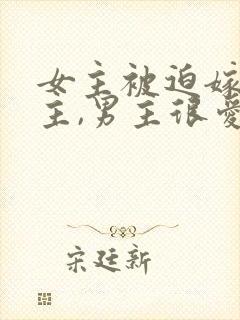 女主被迫嫁
主,男主很爱
宋廷新